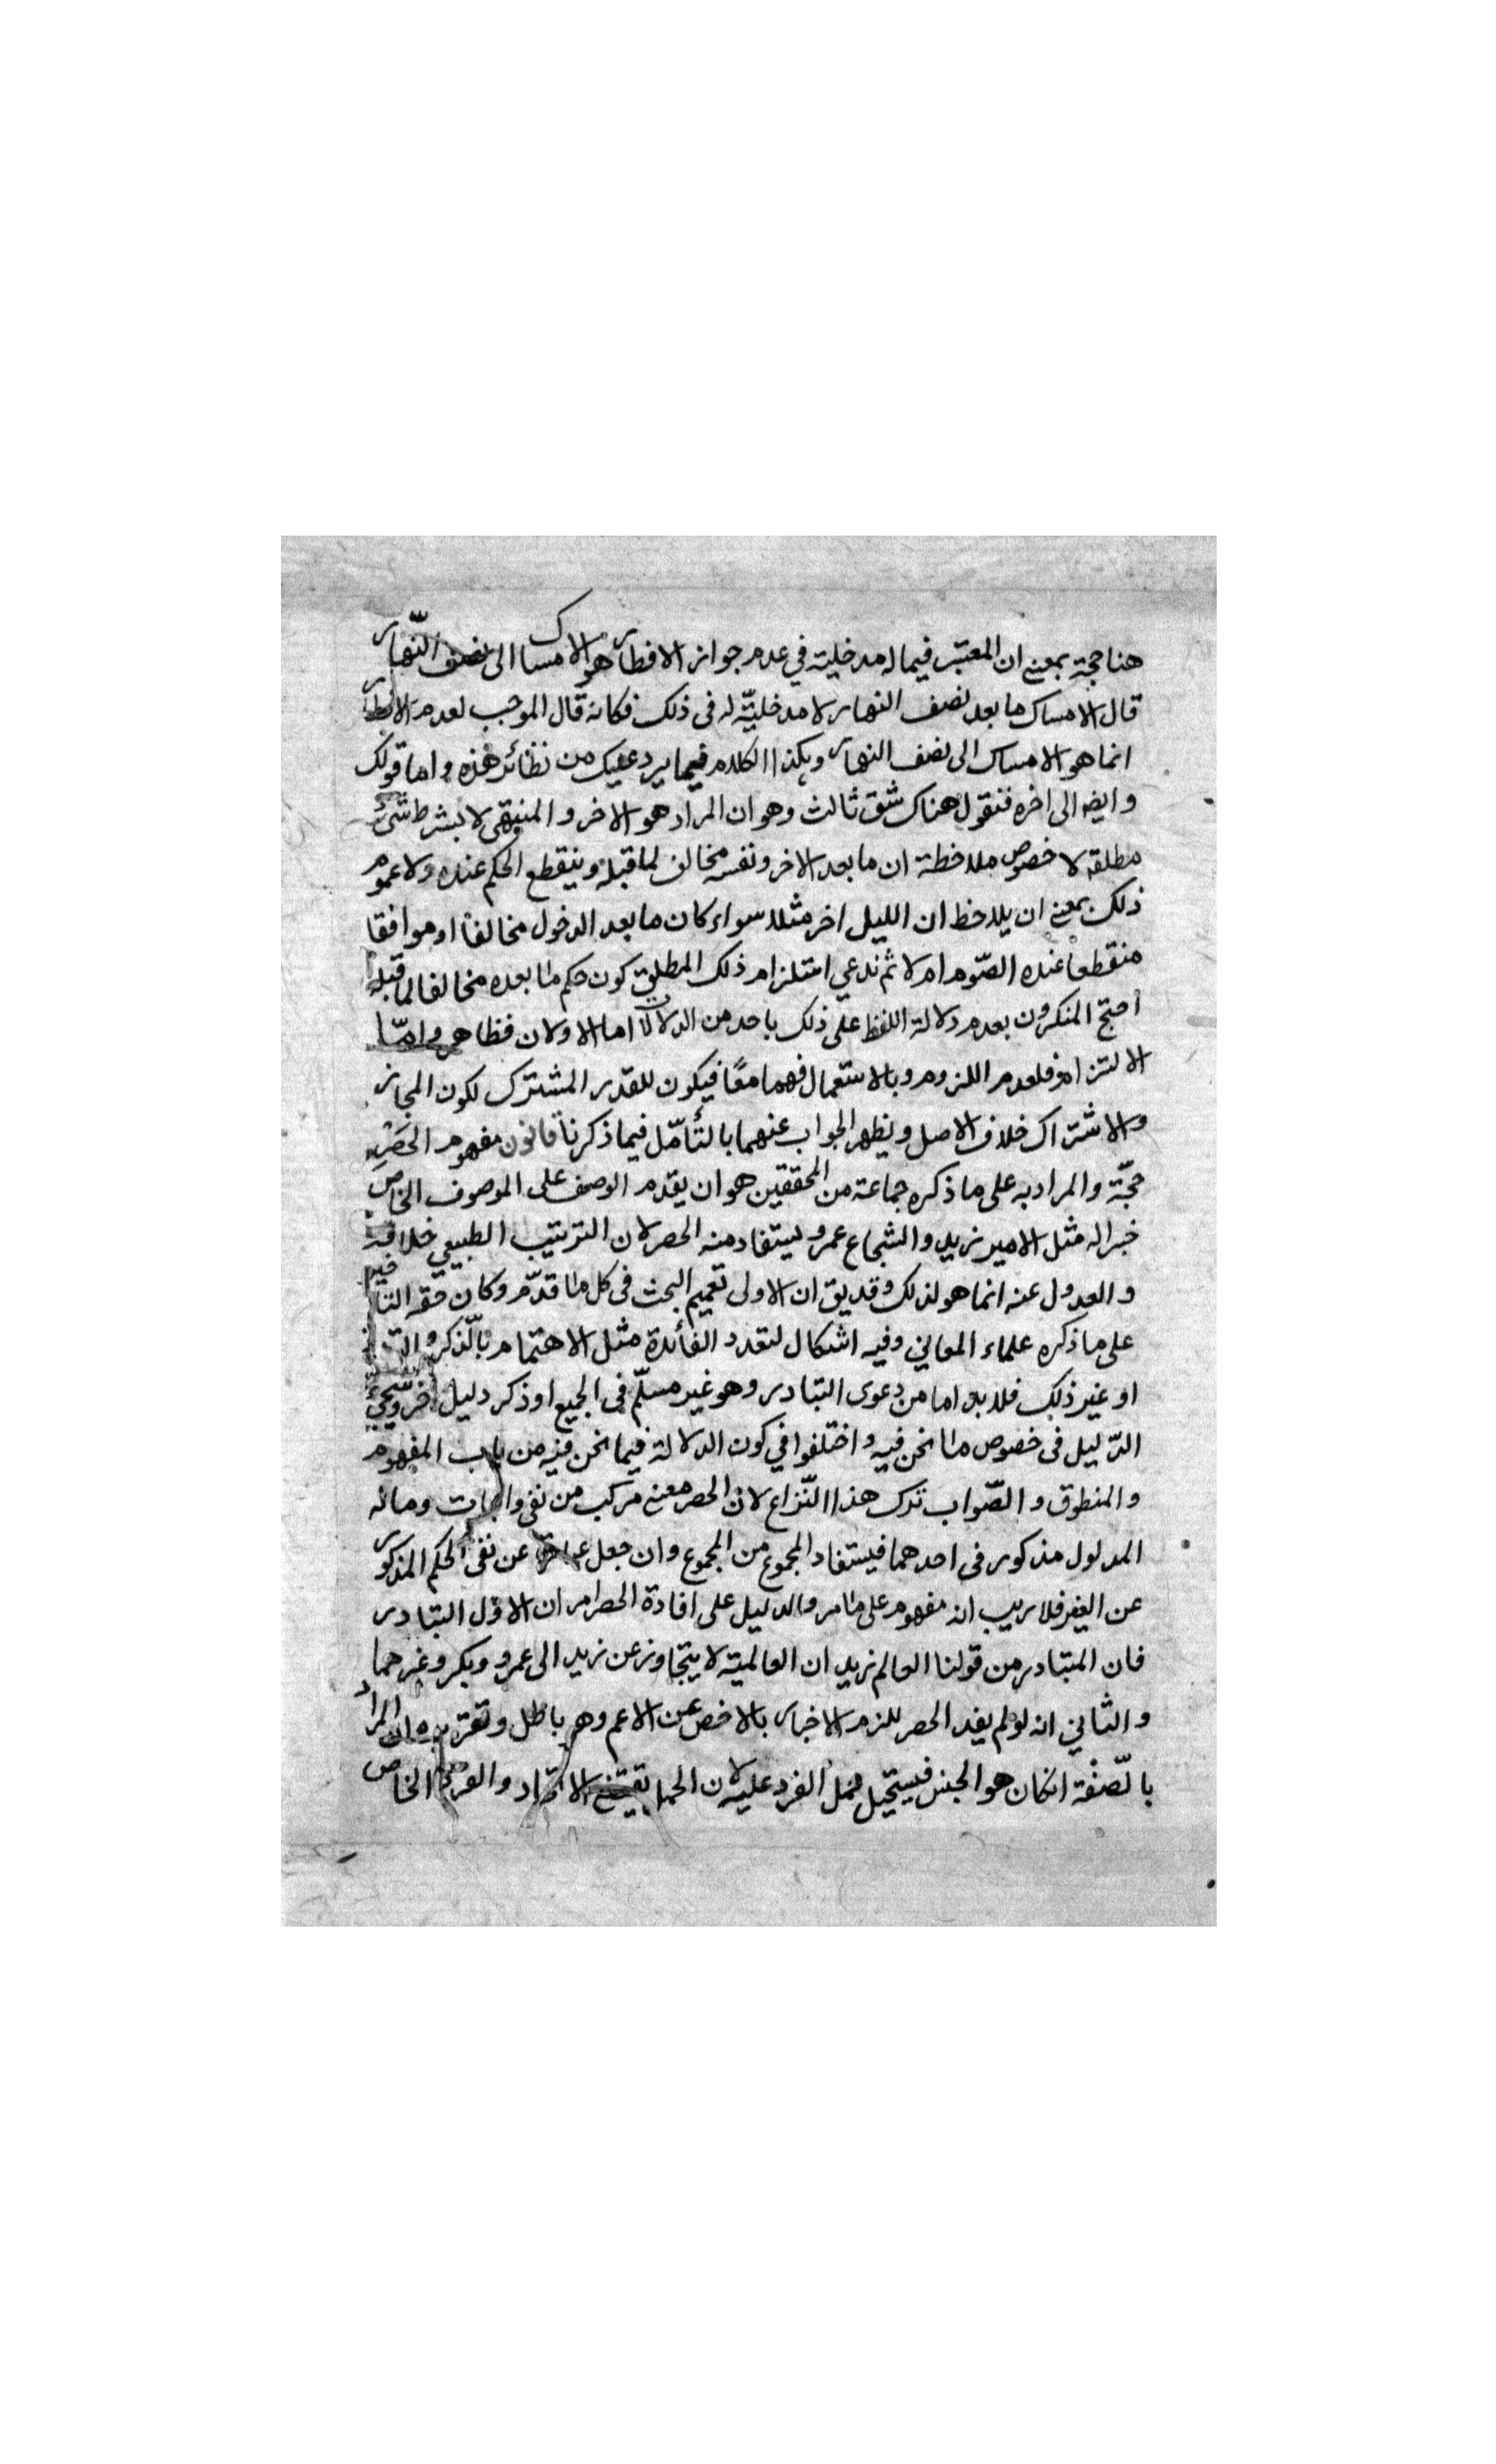 هنا حجة بمعنى ان المعتبر فيما له مدخلية في عدم جواز الافطار هو الامساك الى نصف النّهار
قال الامساك ما بعد نصف النهار لا مدخليّة له فى ذلك فكانه قال الموجب لعدم الافطار
انما هو الامساك الى نصف النهار وبكذا الكلام فيما يرد عليك من نظائر هذه واما قولك
وايضه الى اخره فنقول هناك شق ثالث وهو ان المراد هو الاخر والمنتهى لا بشرط شئ
مطلقه لا خصوص ملاحظة ان ما بعد الاخر ونفسه مخالف لما قبله وينقطع الحكم عنده ولا عموم
ذلك بمعنى ان يلاحظ ان الليل اخر مثلا سواء كان ما بعد الدخول مخالفا او موافقا
منقطعا عنده الصّوم ام لا ثم ندعي استلزام ذلك المطلق كون حكم ما بعده مخالفا لما قبله
احتج المنكرون بعدم دلالة اللفظ على ذلك باحد من الدلالات اما الاولان فظاهر وامّا
الالتزام فلعدم اللزوم وبالاستعمال فهما معًا فيكون للقدر المشترك لكون المجاز
والاشتراك خلاف الاصل ويظهر الجواب عنهما بالتأمّل فيما ذكرنا قانون مفهوم الحَصْرِ
حجّة والمراد به على ما ذكره جماعة من المحققين هو ان يقدم الوصف على الموصوف الخاص
خبرا له مثل الامير زيد والشجاع عمرو ليستفاد منه الحصر لان الترتيب الطبيعي خلافه
والعدول عنه انما هو لذلك وقد يق ان الاولى تعميم البحث فى كل ما قدّم وكان حقه التاخير
على ما ذكره علماء المعاني وفيه اشكال لتعدد الفائدة مثل الاهتمام بالّذكر و
او غير ذلك فلا بد اما من دعوى التبادر وهو غير مسلّم فى الجميع او ذكر دليل اخر وسيجئ
الدّليل فى خصوص ما نحن فيه واختلفوا في كون الدلالة فيما نحن فيه من باب المفهوم
والمنطوق والصّواب ترك هذا النّزاع لان الحصر معنى مركب من نفى واثبات وماله
المدلول مذكور فى احدهما فيستفاد المجموع من المجموع وان جعل عبارة عن نفى الحكم المذكور
عن الغير فلا ريب انه مفهوم على ما مر والدليل على افادة الحصر امران الاوّل التبادر
فان المتبادر من قولنا العالم زيد ان العالمية لا يتجاوز عن زيد الى عمرو وبكر وغيرهما
والثاني انه لو لم يفد الحصر للزم الاخبار بالاخص عن الاعم وهو باطل وتقريره ان المراد
بالّصفة انكان هو الجنس فيستحيل حمل الفرد عليه لان الحمل يقتضى الاتحاد والفرد الخاص